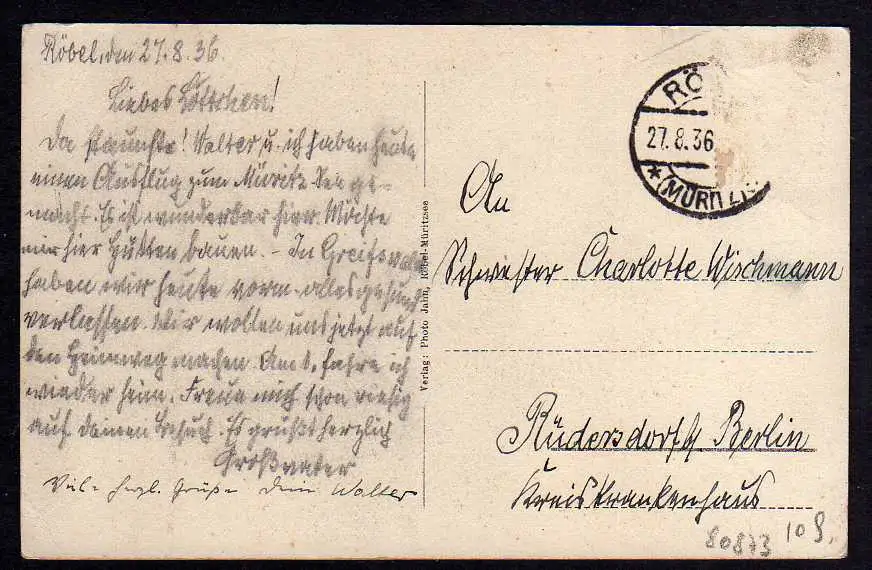 Röbel, den 27.8.36
Liebes Lottchen!
Da staunste! Walter u. ich haben heute
einen Ausflug zum Müritz See ge-
macht. Es ist wunderbar hier. Möchte
mir hier Hütten bauen. – In Greifswald
haben wir heute vorm. alles gesund
verlassen. Wir wollen uns jetzt auf
den Heimweg machen. Am 1. fahre ich
wieder heim. Freue mich schon riesig
auf deinen Besuch. Es grüßt herzlich
Großvater
Viele herzl. Grüße Dein Walter
Verlag: Photo Jahn, Röbel-Müritzsee
RÖ
27.8.36
* (MÜRITZ)
An
Schwester Charlotte Wischmann
Rüdersdorf b/ Berlin
Kreiskrankenhaus
80873
10 9.